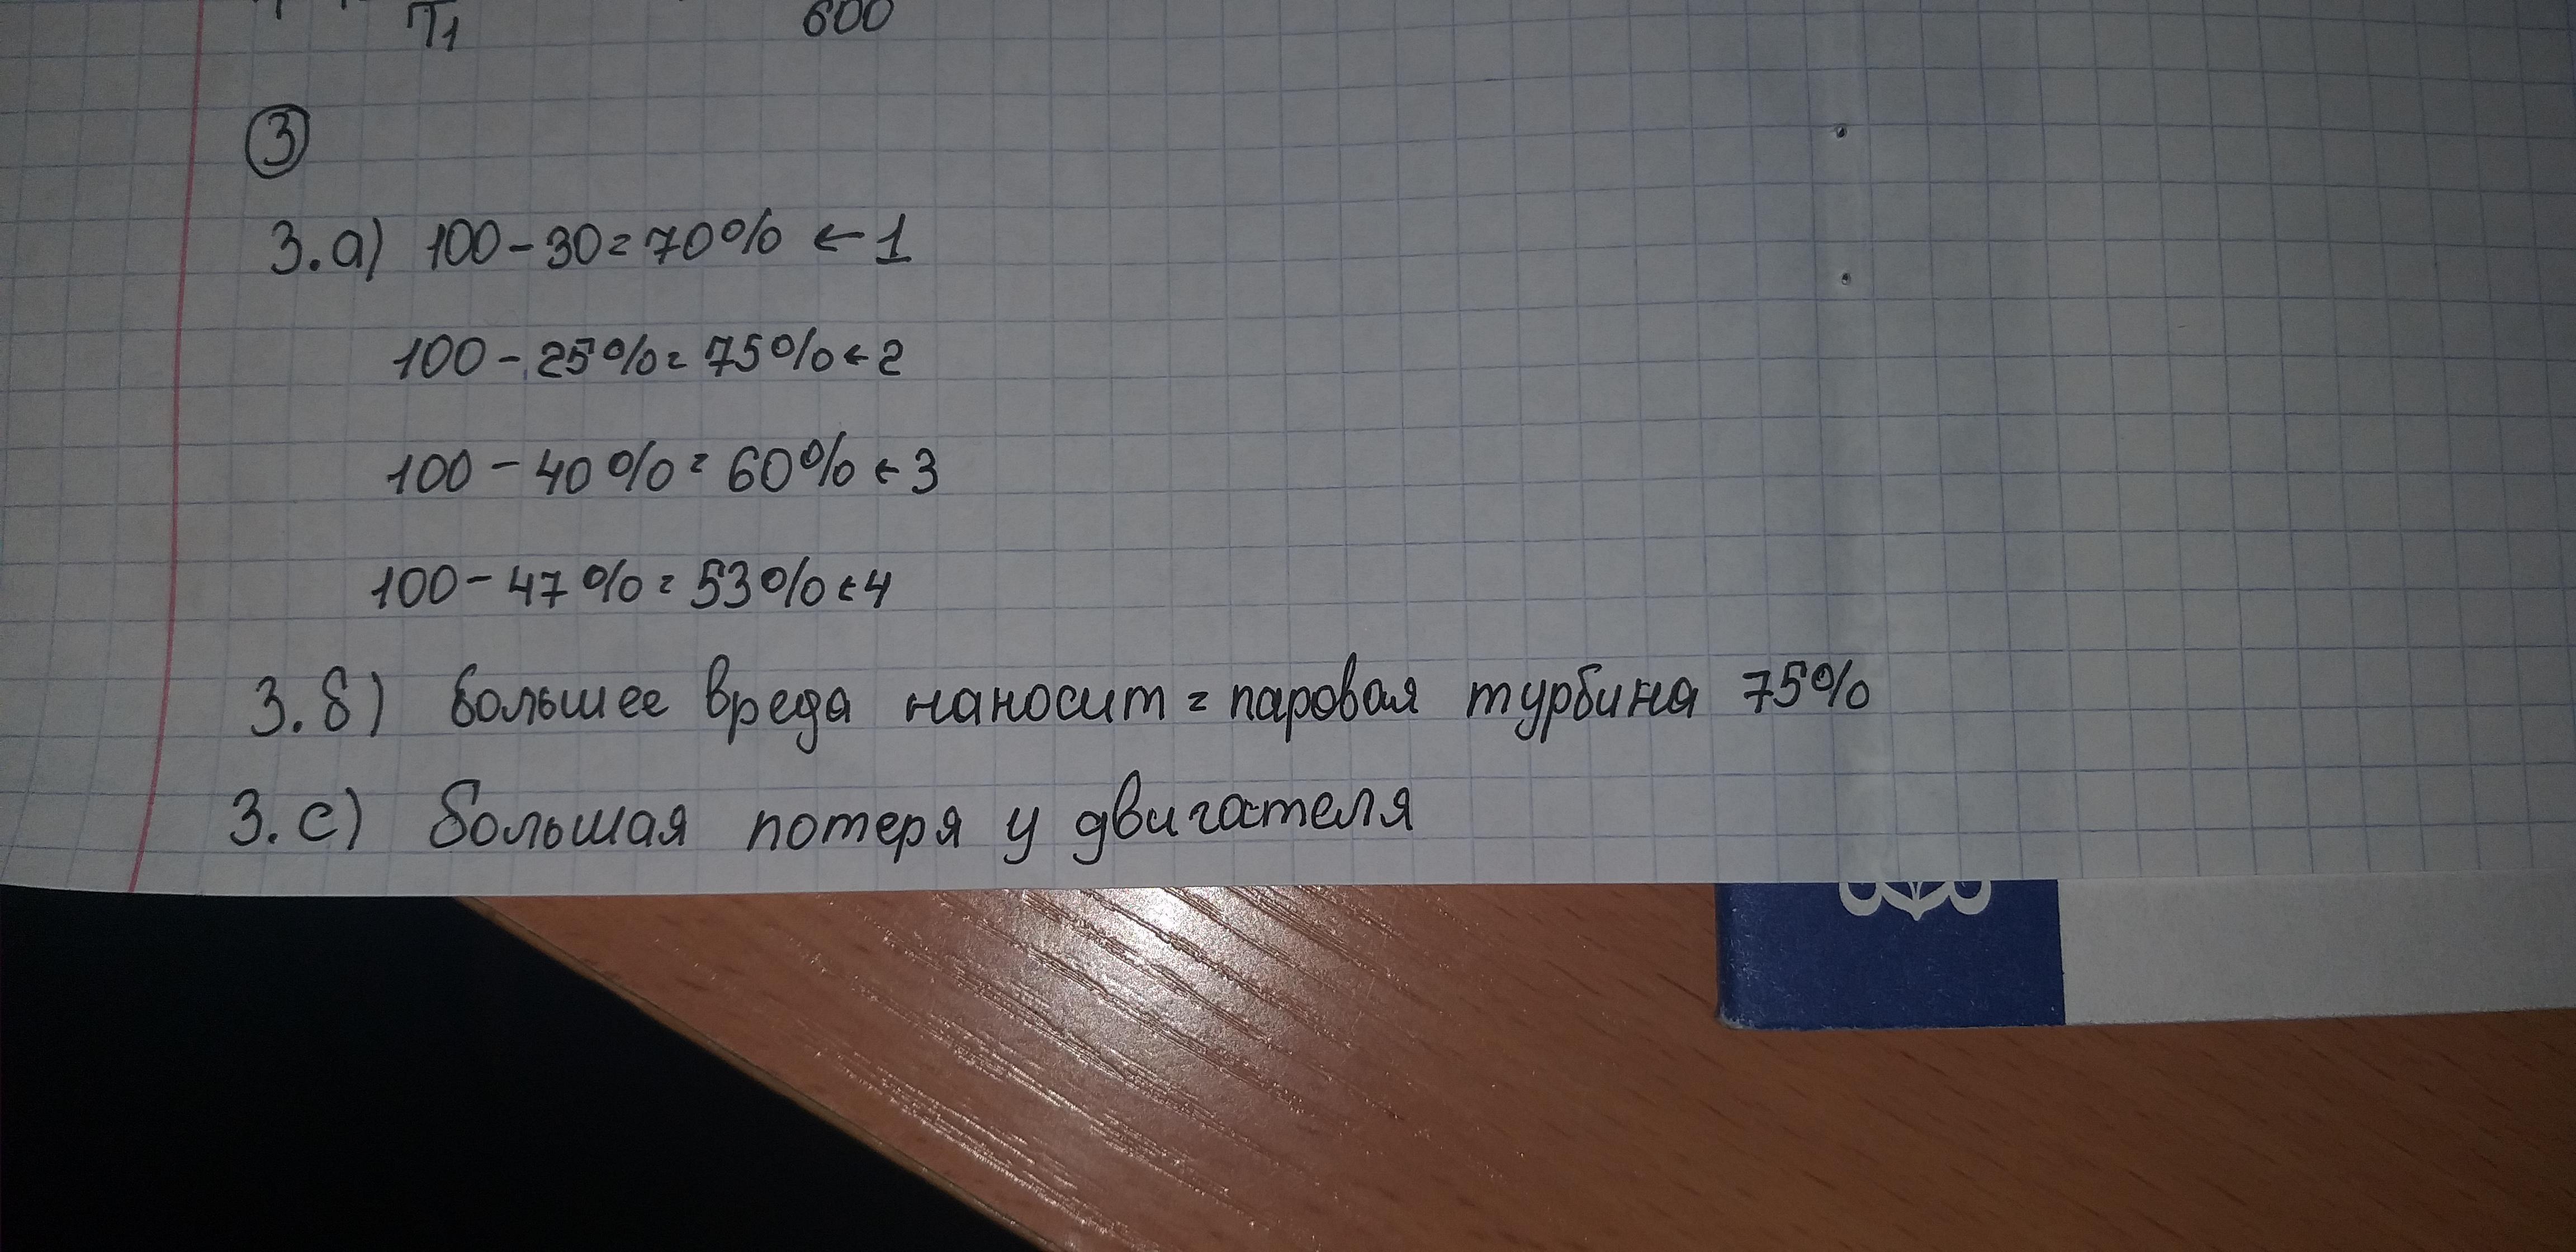 T1 600
3
3.а) 100-30=70% ←1
100-25%=75%←2
100-40%=60%←3
100-47%=53%←4
3.б) большее вреда наносит = паровая турбина 75%
3.с) большая потеря у двигателя